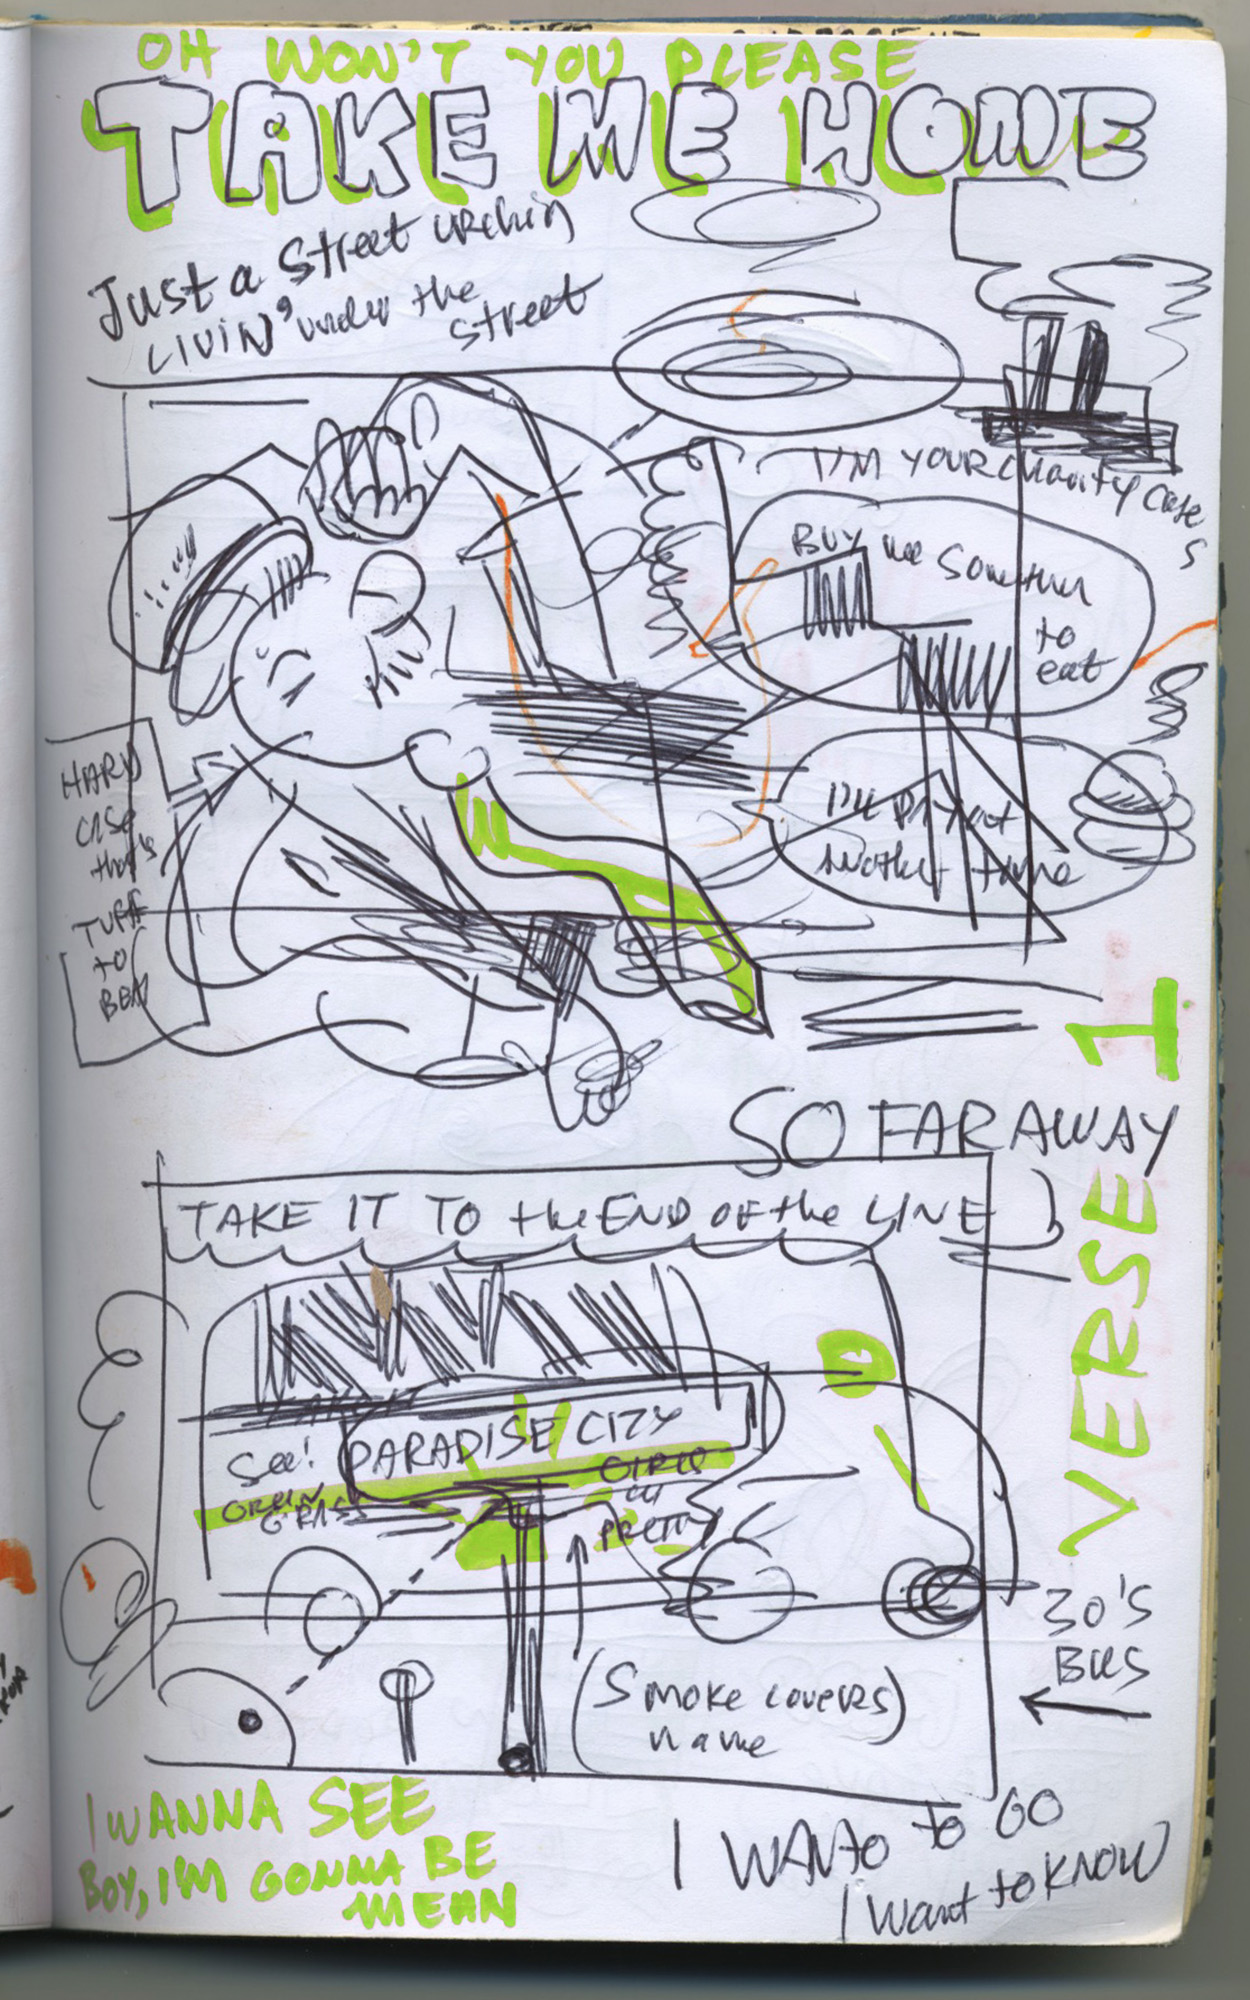 OH WON'T YOU PLEASE
TAKE ME HOME
Just a Street urchin
LIVIN' under the
street
I'M YOUR charity case
BUY me Somethin
to
eat
I'll pay at
another time
HARD
CASE
that's
TUFF
TO
BEAT
VERSE 1
SO FAR AWAY
TAKE IT TO the END OF the LINE
See! PARADISE CITY
GREEN
GRASS
GIRLS
PRETTY
30'S
BUS
(Smoke lovers)
name
I WANNA SEE
BOY, I'M GONNA BE
MEAN
I WANto to GO
I Want to KNOW